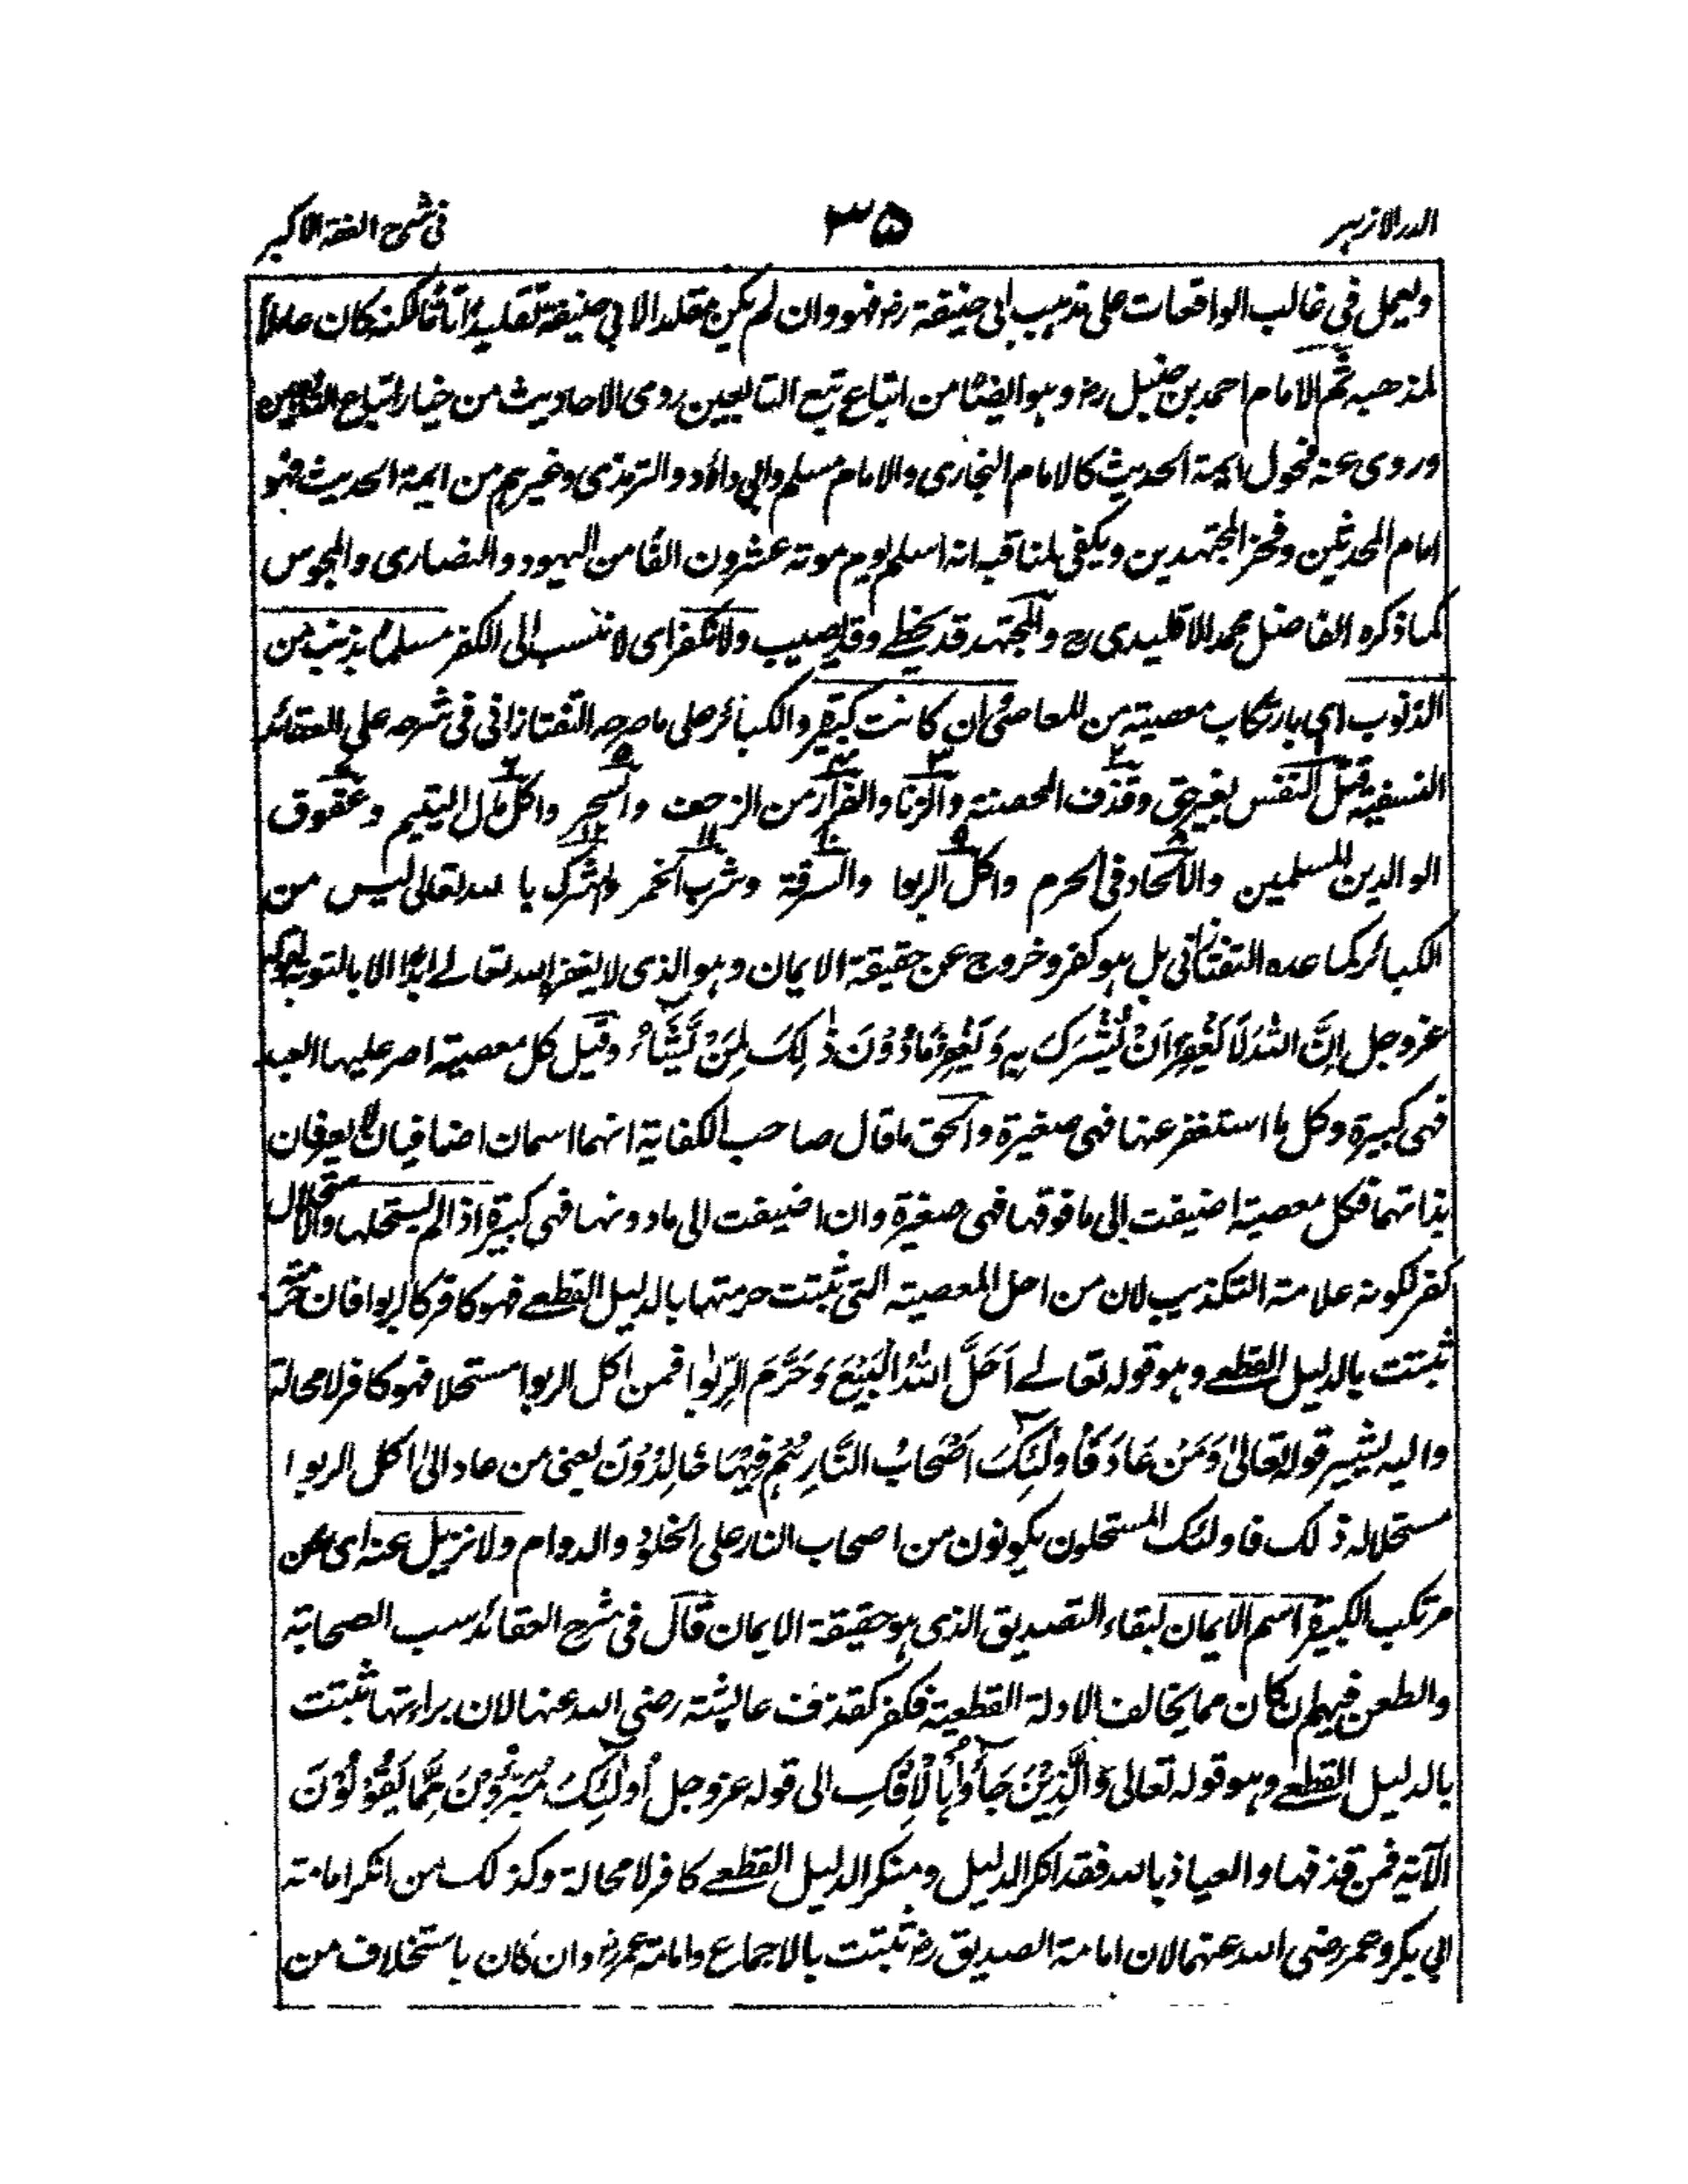 الدر الازہر ۳۵ فی شرح الفقہ الاکبر
ویعمل فی غالب الواقعات علی مذہب ابی حنیفۃ رض فہو وان لم یکن مقلدا لابی حنیفۃ تقلیدا تاما لکنہ کان عاملاً
لمذھبہ ثم الامام احمد بن حنبل رض وہو ایضا من اتباع تبع التابعین روی الاحادیث من خیار اتباع التابعین
وروی عنہ فحول ایمۃ الحدیث کالامام البخاری والامام مسلم وابی داؤد والترمذی وغیرہم من ایمۃ الحدیث فہو
امام المحدثین وفخر المجتہدین ویکفی لمناقبہ انہ اسلم یوم موتہ عشرون الفا من الیہود والنصاری والمجوس
کما ذکرہ الفاضل محمد الاقلیدی رح والمجتہد قد یخطے وقد یصیب ولا نکفر ای لا ننسب الی الکفر مسلما بذنب من
الذنوب ای بارتکاب معصیۃ من المعاصی وان کانت کبیرۃ والکبائر علی ما صرحہ التفتازانی فی شرحہ علی العقائد
النسفیۃ قتل النفس بغیر حق وقذف المحصنۃ والزنا والفرار من الزحف والسحر واکل مال الیتیم وعقوق
الوالدین المسلمین والالحاد فی الحرم واکل الربوا والسرقۃ وشرب الخمر والشرک باللہ تعالی لیس من
الکبائر کما عدہ التفتازانی بل ہو کفر وخروج عن حقیقۃ الایمان وہو الذی لا یغفر اللہ تعالے ابدا الا بالتوبۃ لقولہ
عزوجل اِنَّ اللّٰہَ لَا یَغْفِرُ اَنْ یُّشْرَکَ بِہٖ وَیَغْفِرُ مَا دُوْنَ ذٰلِکَ لِمَنْ یَّشَآءُ وقیل کل معصیۃ اصر علیہا العبد
فہی کبیرۃ وکل ما استغفر عنہا فہی صغیرۃ والحق ما قال صاحب الکفایۃ انہما اسمان اضافیان لا یعرفان
بذاتہما فکل معصیۃ اضیفت الی ما فوقہا فہی صغیرۃ وان اضیفت الی ما دونہا فہی کبیرۃ اذا لم یستحلہا والاستحلال
کفر لکونہ علامۃ التکذیب لان من احل المعصیۃ التی ثبتت حرمتہا بالدلیل القطعے فہو کافر کالربوا فان حرمتہ
ثبتت بالدلیل القطعے وہو قولہ تعالے اَحَلَّ اللّٰہُ الْبَیْعَ وَحَرَّمَ الرِّبٰوا فمن اکل الربوا مستحلا فہو کافر لا محالۃ
والیہ یشیر قولہ تعالیٰ وَمَنْ عَادَ فَاُولٰئِکَ اَصْحَابُ النَّارِ ہُمْ فِیْہَا خَالِدُوْنَ یعنی من عاد الیٰ اکل الربوا
مستحلا لہ ذلک فاولئک المستحلون یکونون من اصحاب النار علی الخلود والدوام ولا نزیل عنہ ای عن
مرتکب الکبیرۃ اسم الایمان لبقاء التصدیق الذی ہو حقیقۃ الایمان قال فی شرح العقائد سب الصحابۃ
والطعن فیہم ان کان مما یخالف الادلۃ القطعیۃ فکفر کقذف عائشۃ رضی اللہ عنہا لان براءتہا ثبتت
بالدلیل القطعے وہو قولہ تعالی وَالَّذِیْنَ جَآءُوْا بِالْاِفْکِ الی قولہ عزوجل اُولٰئِکَ مُبَرَّءُوْنَ مِمَّا یَقُوْلُوْنَ
الآیۃ فمن قذفہا والعیاذ باللہ فقد انکر الدلیل ومنکر الدلیل القطعے کافر لا محالۃ وکذلک من انکر امامۃ
ابی بکر وعمر رضی اللہ عنہما لان امامۃ الصدیق رض ثبتت بالاجماع وامامۃ عمر رض وان کان باستخلاف من